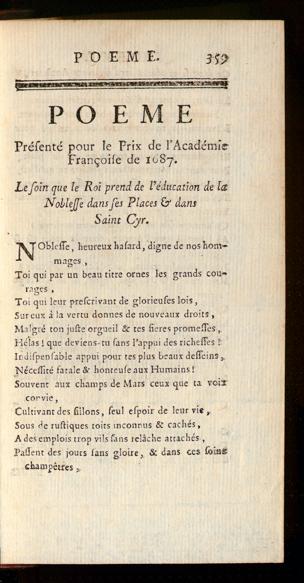 POEME. 359
POEME
Préſenté pour le Prix de l'Académie
Françoiſe de 1687.
Le ſoin que le Roi prend de l'éducation de la
Nobleſſe dans ſes Places & dans
Saint Cyr.
NObleſſe, heureux haſard, digne de nos hom-
mages,
Toi qui par un beau titre ornes les grands cou-
rages,
Toi qui leur preſcrivant de glorieuſes lois,
Sur eux à la vertu donnes de nouveaux droits,
Malgré ton juſte orgueil & tes fieres promeſſes,
Hélas! que deviens-tu ſans l'appui des richeſſes!
Indiſpenſable appui pour tes plus beaux deſſeins,
Néceſſité fatale & honteuſe aux Humains!
Souvent aux champs de Mars ceux que ta voix
convie,
Cultivant des ſillons, ſeul eſpoir de leur vie,
Sous de ruſtiques toits inconnus & cachés,
A des emplois trop vils ſans relâche attachés,
Paſſent des jours ſans gloire, & dans ces ſoins
champêtres,